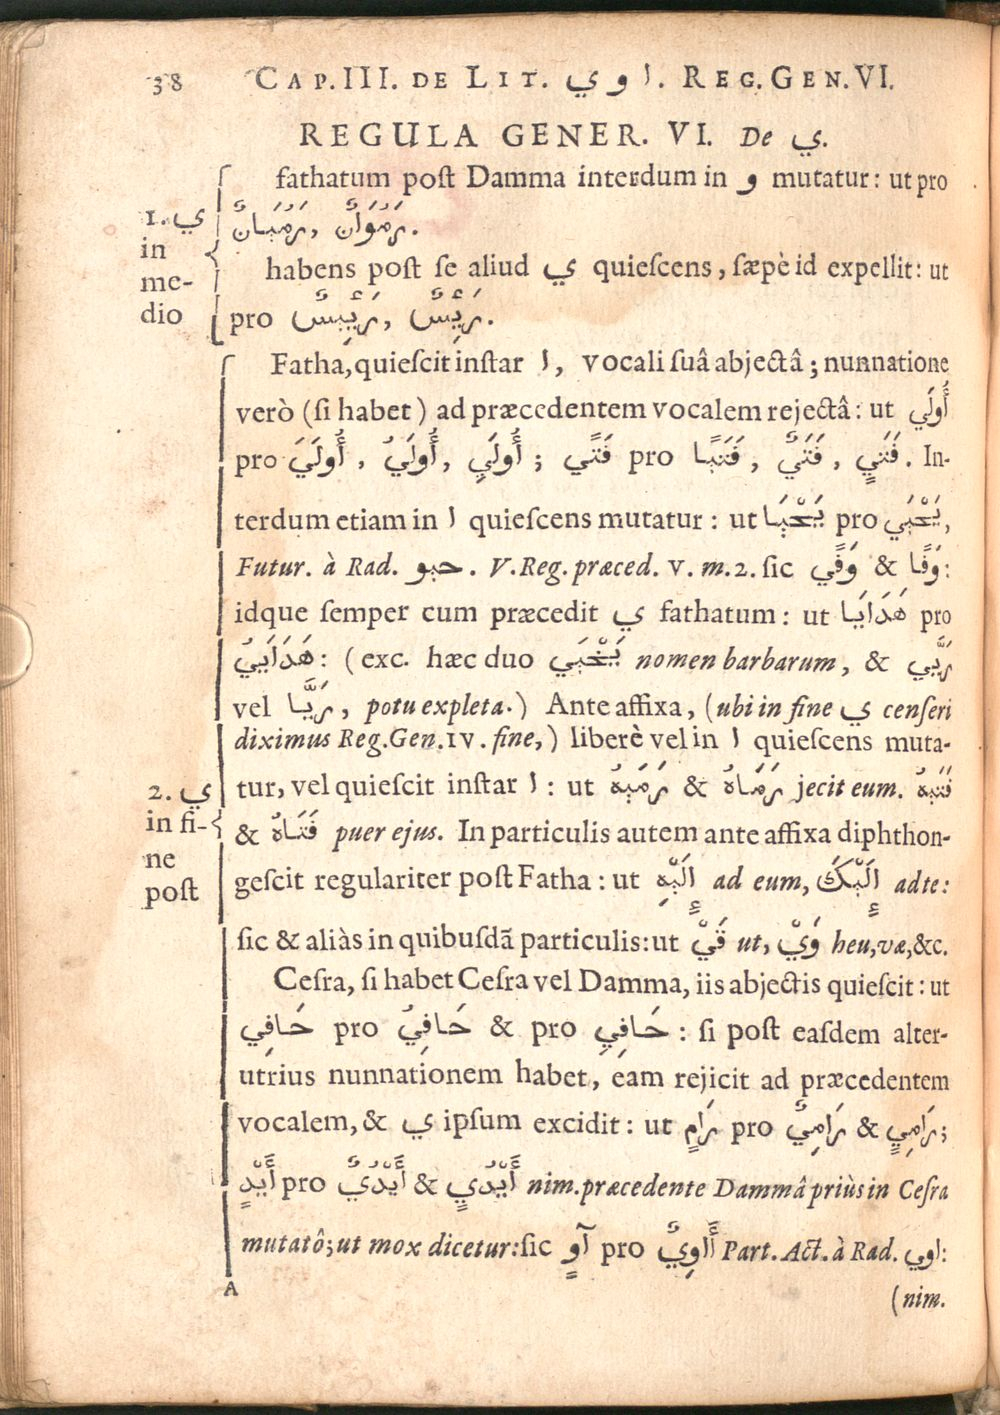 38 CAP. III. DE LIT. اوي. REG. GEN. VI.
REGULA GENER. VI. De ي.
fathatum poſt Damma interdum in و mutatur: ut pro
1. ي
in
me-
dio
habens poſt ſe aliud ي quieſcens, ſæpè id expellit: ut
pro
Fatha, quieſcit inſtar ا, vocali ſuâ abjectâ; nunnatione
verò (ſi habet) ad præcedentem vocalem rejectâ: ut أُولَي
pro أُولَيَ, أُولَيُ, أُولَيِ; فَتًي pro فَتَيًا, فَتَيٌ, فَتَيٍ. In-
terdum etiam in ا quieſcens mutatur: ut يَحْيَا pro يَحْيَي,
Futur. à Rad. حيو. V. Reg. præced. V. m. 2. ſic وَفًي & وَفًا:
idque ſemper cum præcedit ي fathatum: ut هَدَايَا pro
هَدَايَيُ: (exc. hæc duo يَحْيَي nomen barbarum, & رَيَّي
vel رَيَّا, potu expleta.) Ante affixa, (ubi in fine ي cenſeri
diximus Reg. Gen. IV. fine,) liberè vel in ا quieſcens muta-
2. ي
in fi-
ne
poſt
tur, vel quieſcit inſtar ا: ut رَمَيهُ & رَمَاهُ jecit eum. فَتَيهُ
& فَتَاهُ puer ejus. In particulis autem ante affixa diphthon-
geſcit regulariter poſt Fatha: ut إِلَيْهِ ad eum, إِلَيْكَ ad te:
ſic & aliàs in quibuſdã particulis: ut ut, وَيْ heu, væ, &c.
Ceſra, ſi habet Ceſra vel Damma, iis abjectis quieſcit: ut
حَافِي pro حَافِيُ & pro حَافِيِ: ſi poſt eaſdem alter-
utrius nunnationem habet, eam rejicit ad præcedentem
vocalem, & ي ipſum excidit: ut رَامٍ pro رَامِيٌ & رَامِيٍ;
أَيْدٍ pro أَيْدُيٌ & أَيْدُيٍ nim. præcedente Dammâ priùs in Ceſra
mutatô; ut mox dicetur: ſic آوٍ pro أَاوِيٌ Part. Act. à Rad. اوي:
A
(nim.